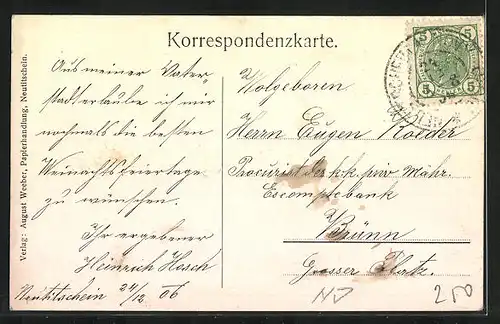 Korrespondenzkarte.
Aus meiner Vater-
stadt erlaube ich mir
nochmals die besten
Weinachtsfeiertage
zu wünschen.
Ihr ergebener
Heinrich Hosch
Neutitschein 24/12 06
Wolgeboren
Herrn Eugen Roeder
Procurist der k.k. priv. Mähr.
Escomptebank
Brünn
Grosser Platz.
Verlag: August Weeber, Papierhandlung, Neutitschein.
5 5
5 5
250